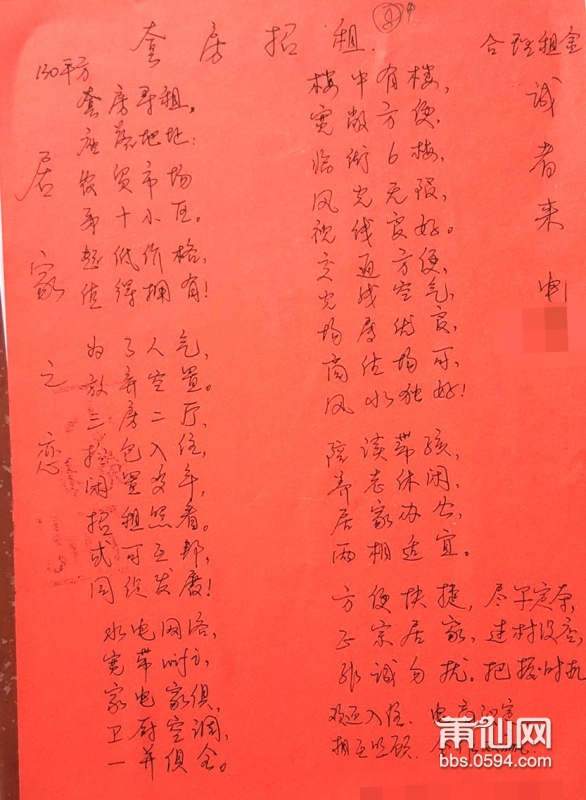 套房招租
合理租金
诚者来电
130平方
居家之恋
套房寻租,
座落地址:
农贸市场
弄十小区。
超低价格,
值得拥有!
为了人气,
放弃空置。
三房二厅,
拎包入住,
闲置多年,
招租照看。
或可互帮,
同续发展!
水电网络,
宽带
家电家俱,
卫厨空调,
一并俱全。
楼中有楼,
宽敞方便,
临街6楼,
风光无限,
视线良好。
交通方便,
光线空气,
均属优良,
商住均可,
风水独好!
陪读带孩,
养老休闲,
居家办公,
两相适宜。
方便快捷,尽早定夺,
正宗居家,过村没店,
非诚勿扰,把握时机
欢迎入住、电商
相互照顾、
莆仙网
bbs.0594.com